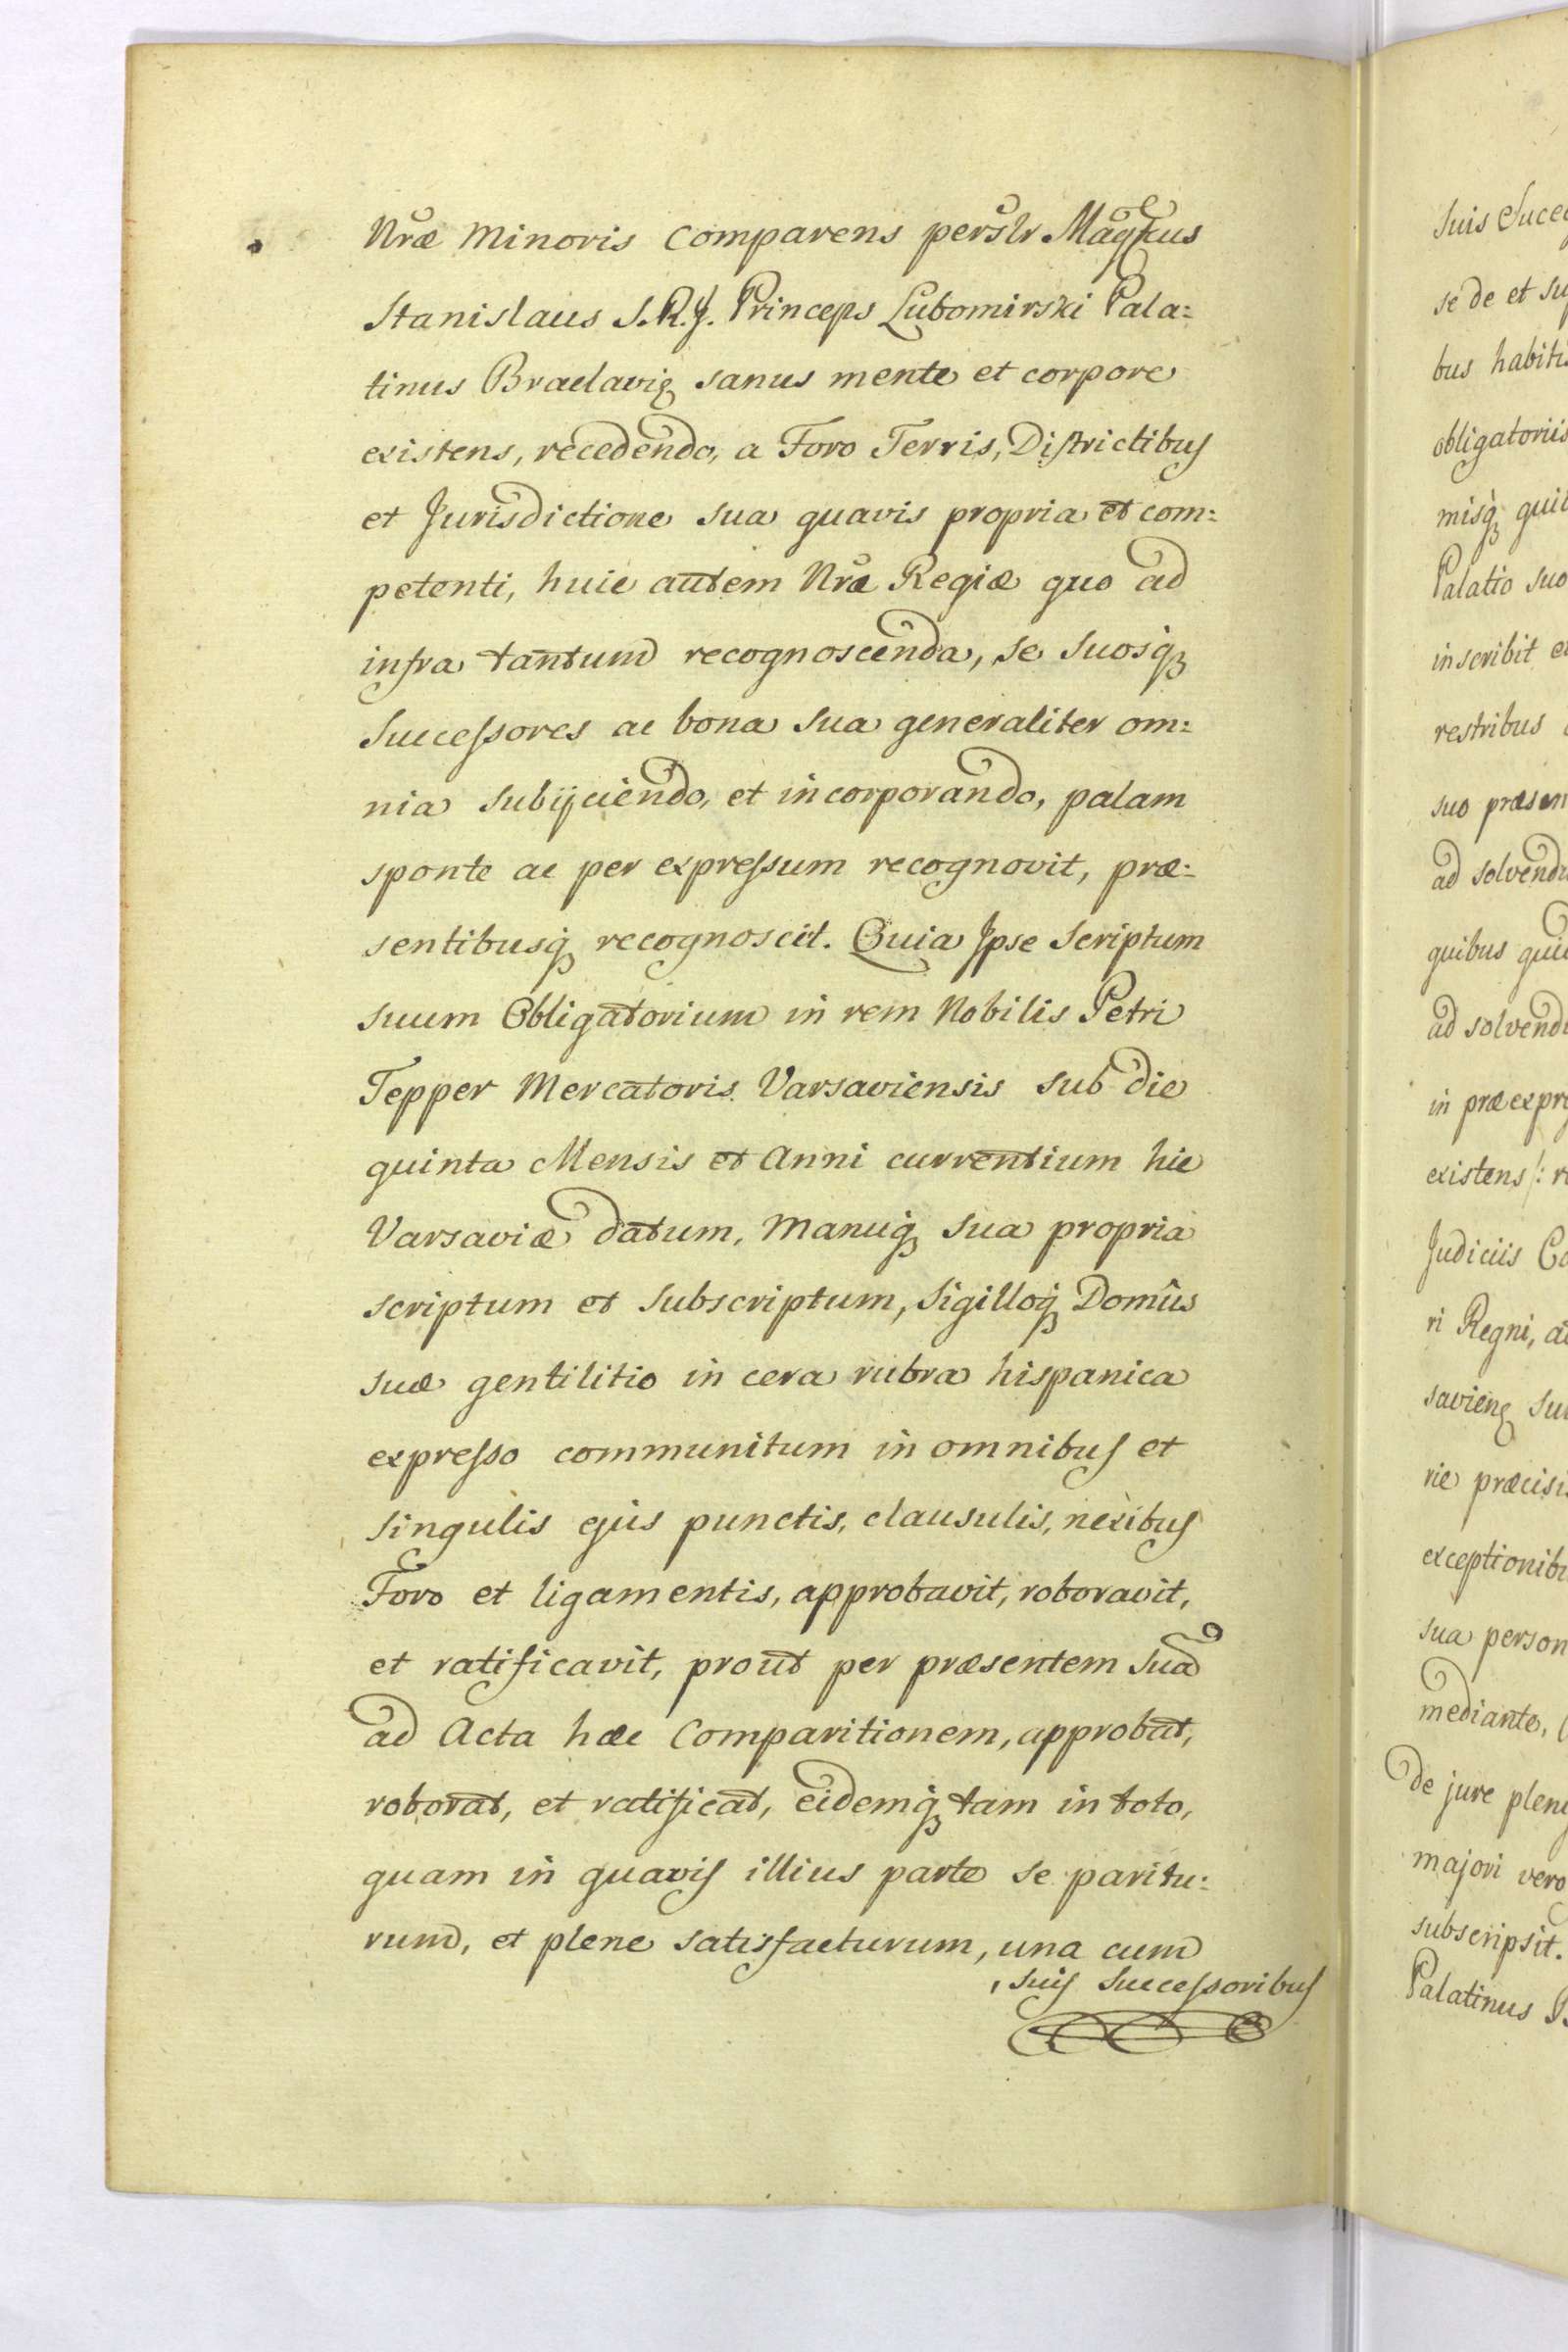 Nr̃æ Minoris Comparens persl̃r Mag̃cus
Stanislaus S.R.J. Princeps Lubomirski Pala=
tinus Braclaviȩ sanus mente et corpore
existens, recedendo, a Foro Terris, Diſtrictibuſ
et Jurisdictione sua quavis propria et com=
petenti, huic autem Nr̃æ Regiæ quo ad
infra tantum recognoscenda, se suosq̃
Succeſsores ac bona sua generaliter om=
nia subijciendo, et incorporando, palam
sponte ac per expreſsum recognovit, præ=
sentibusq̃ recognoscit. Quia Ipse Scriptum
suum Obligatorium in rem Nobilis Petri
Tepper Mercatoris Varsaviensis sub die
quinta Mensis et Anni currentium hic
Varsaviæ datum, Manuq̃ sua propria
scriptum et subscriptum, Sigilloq̃ Domûs
suæ gentilitio in cera rubra hispanica
expreſso communitum in omnibuſ et
singulis ejus punctis, clausulis, nexibuſ
Foro et ligamentis, approbavit, roboravit,
et ratificavit, prout per præsentem Suã
ad Acta hæc Comparitionem, approbat,
roborat, et ratificat, eidemq̃ tam in toto,
quam in quaviſ illius parte se paritu=
rum, et plene satisfacturum, una cum
suiſ Succeſsoribuſ
Suis Succe
se de et su
bus habitis
obligatoriis
misq̃ qui
Palatio suo
inscribit e
restribus
suo præsen
ad solvend
quibus qui
ad solvend
in præexpre
existens /: r
Judiciis C
ri Regni, a
savienȩ su
rie præcisi
exceptionib
sua person
mediante,
de jure plen
majori vero
subscripsit.
Palatinus B